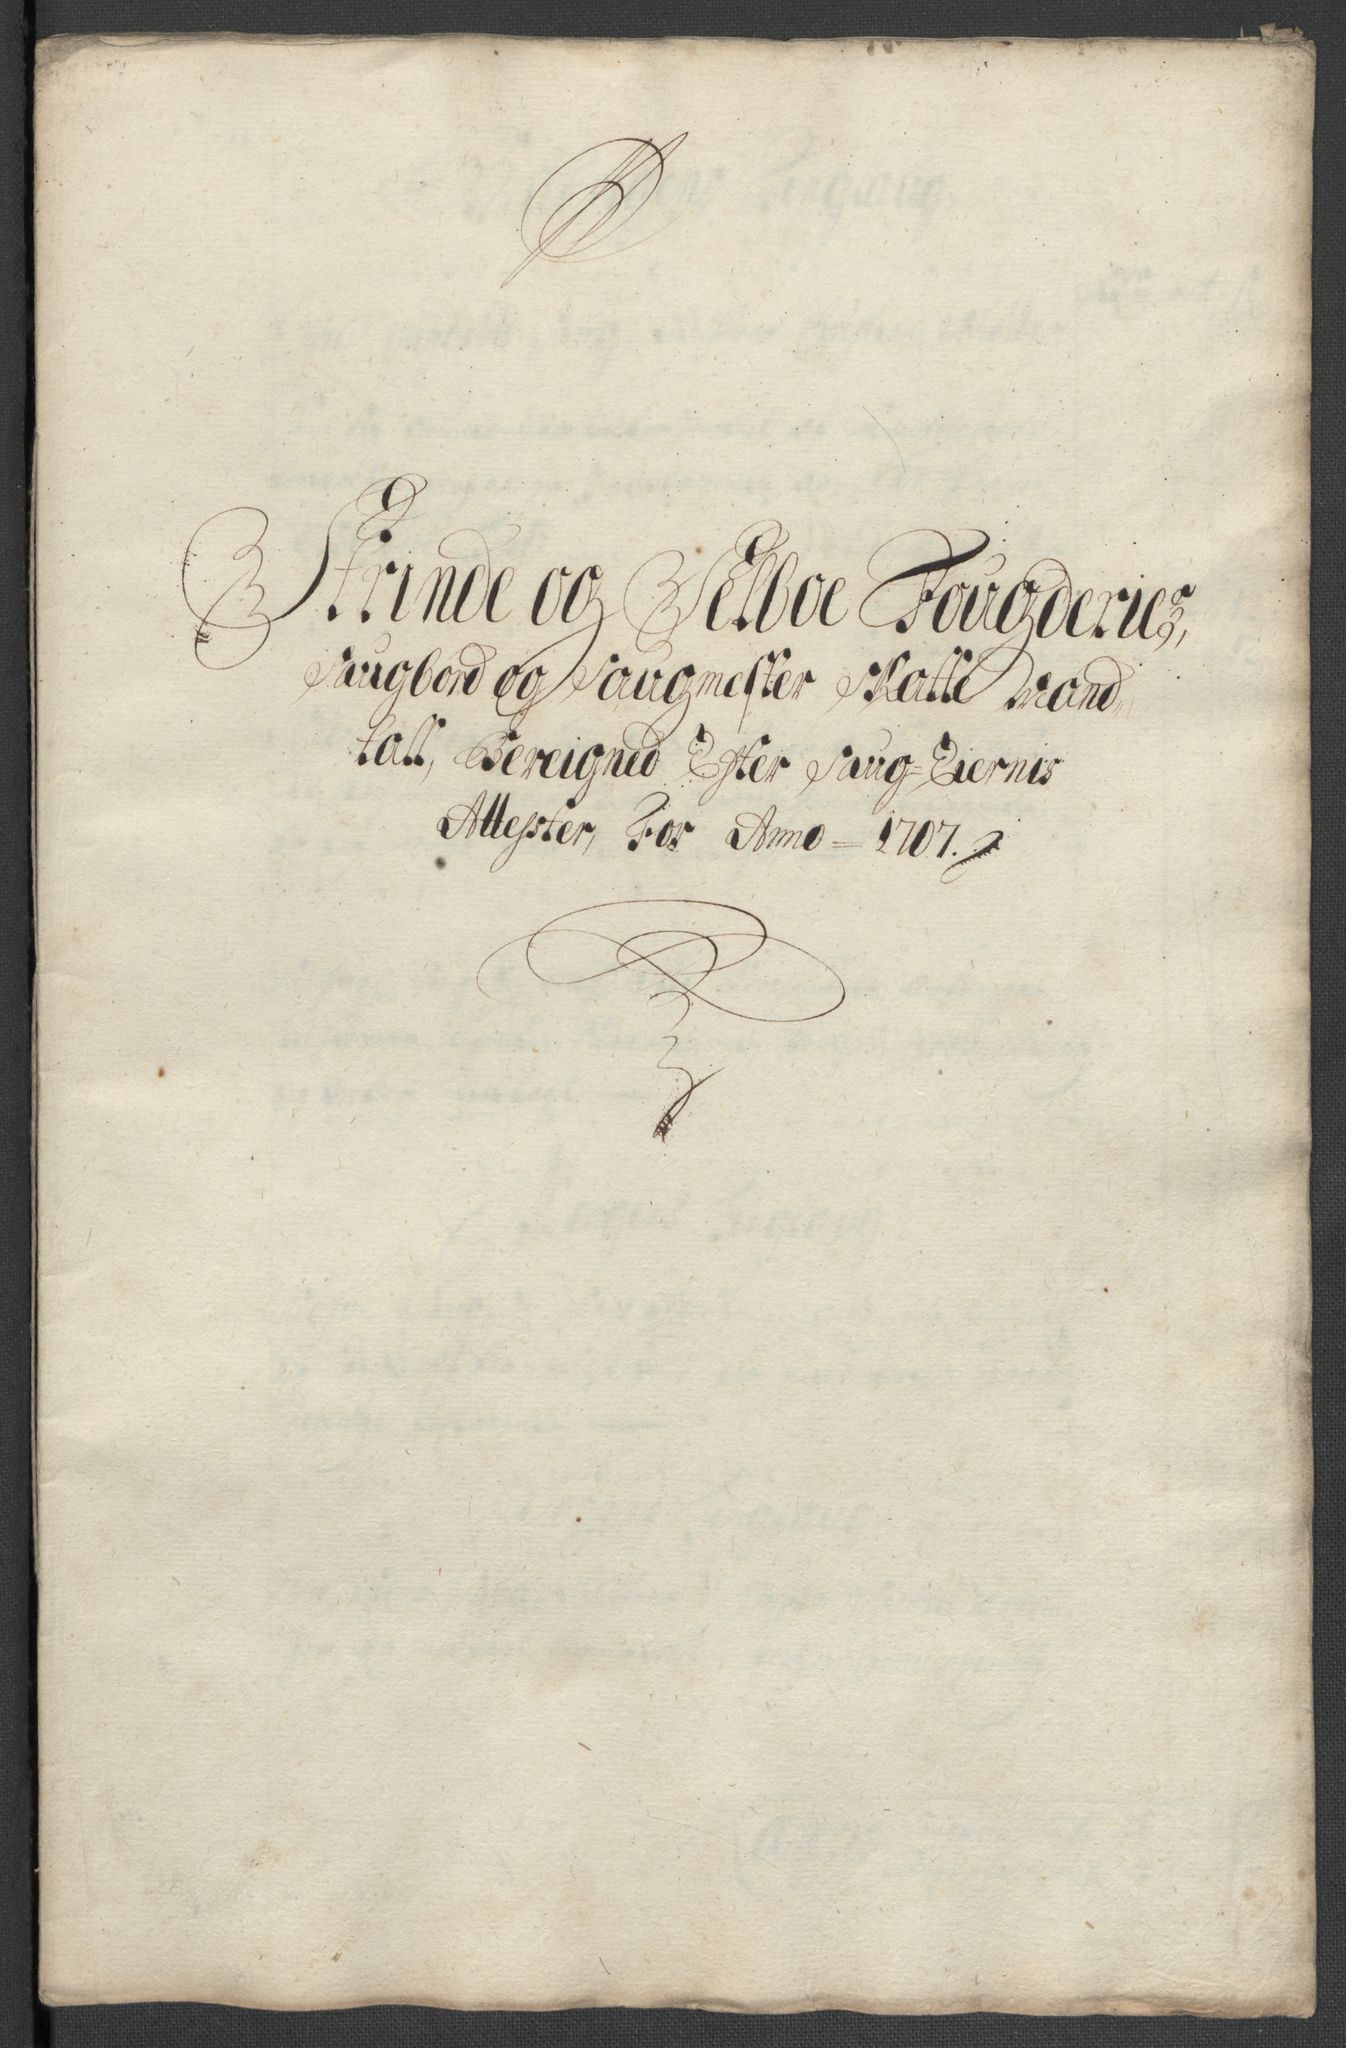 Strinde og Selboe Fougderies,
Saugbord og Saugmester Skatte Mand-
tall, Bereigned Efter Saug-Eiernis
Attester, For Anno - 1707.